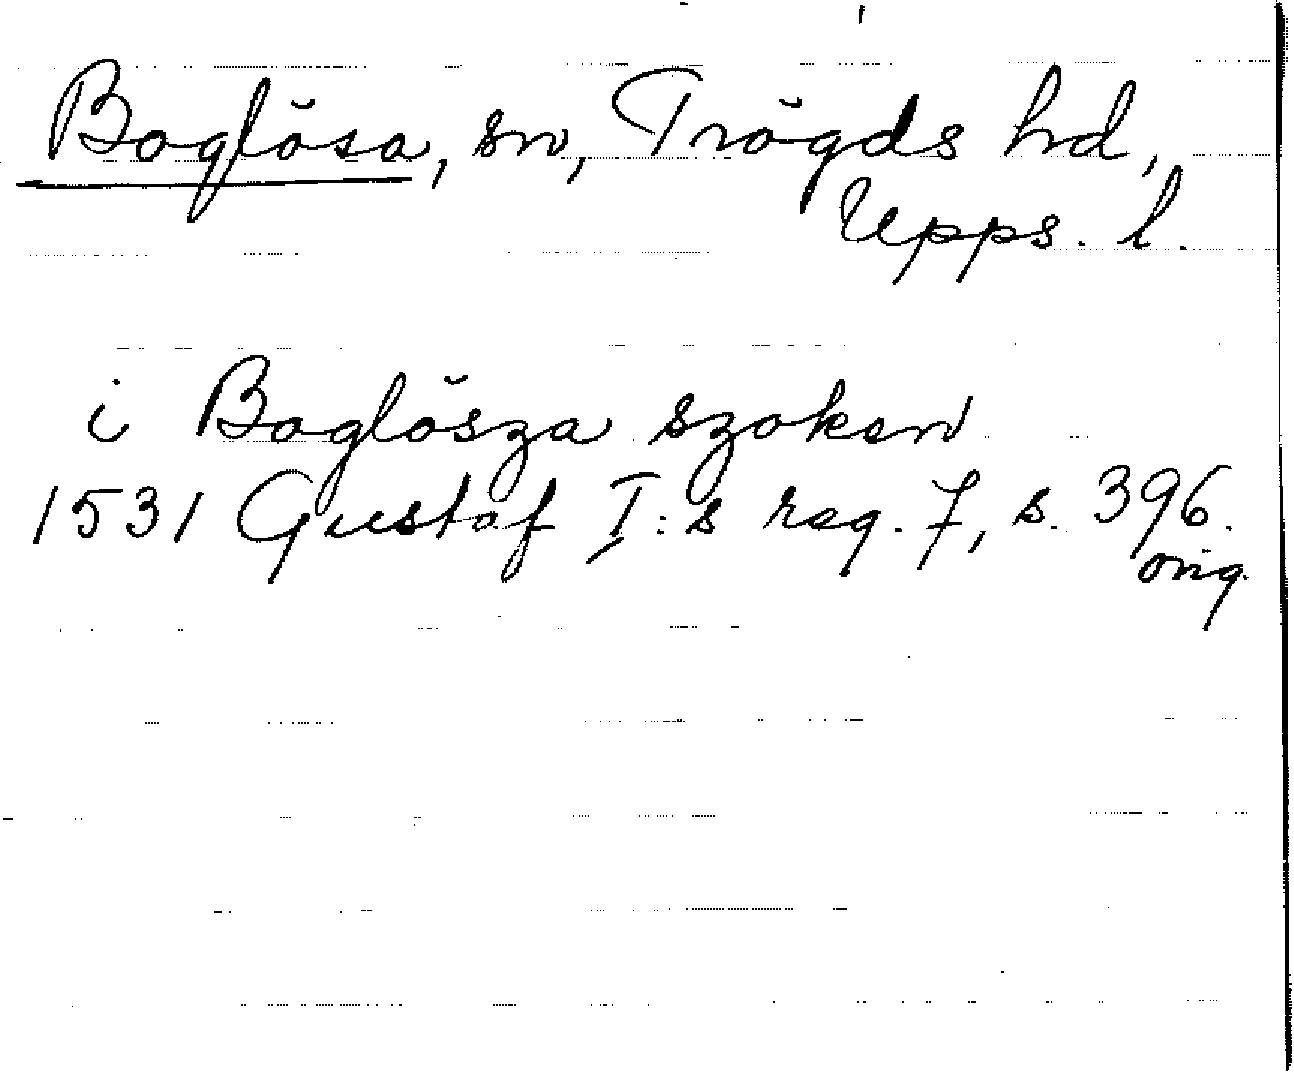 Boglösa, sn, Trögds hd,
Upps. l.
i Boglösza szoken
1531 Gustaf I:s reg. 7, s. 396.
orig.